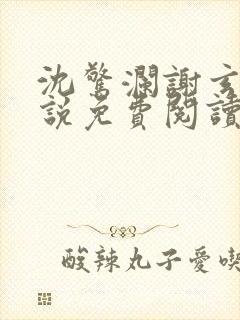 沈驚瀾謝玄
說免費閱讀
酸辣丸子愛喫